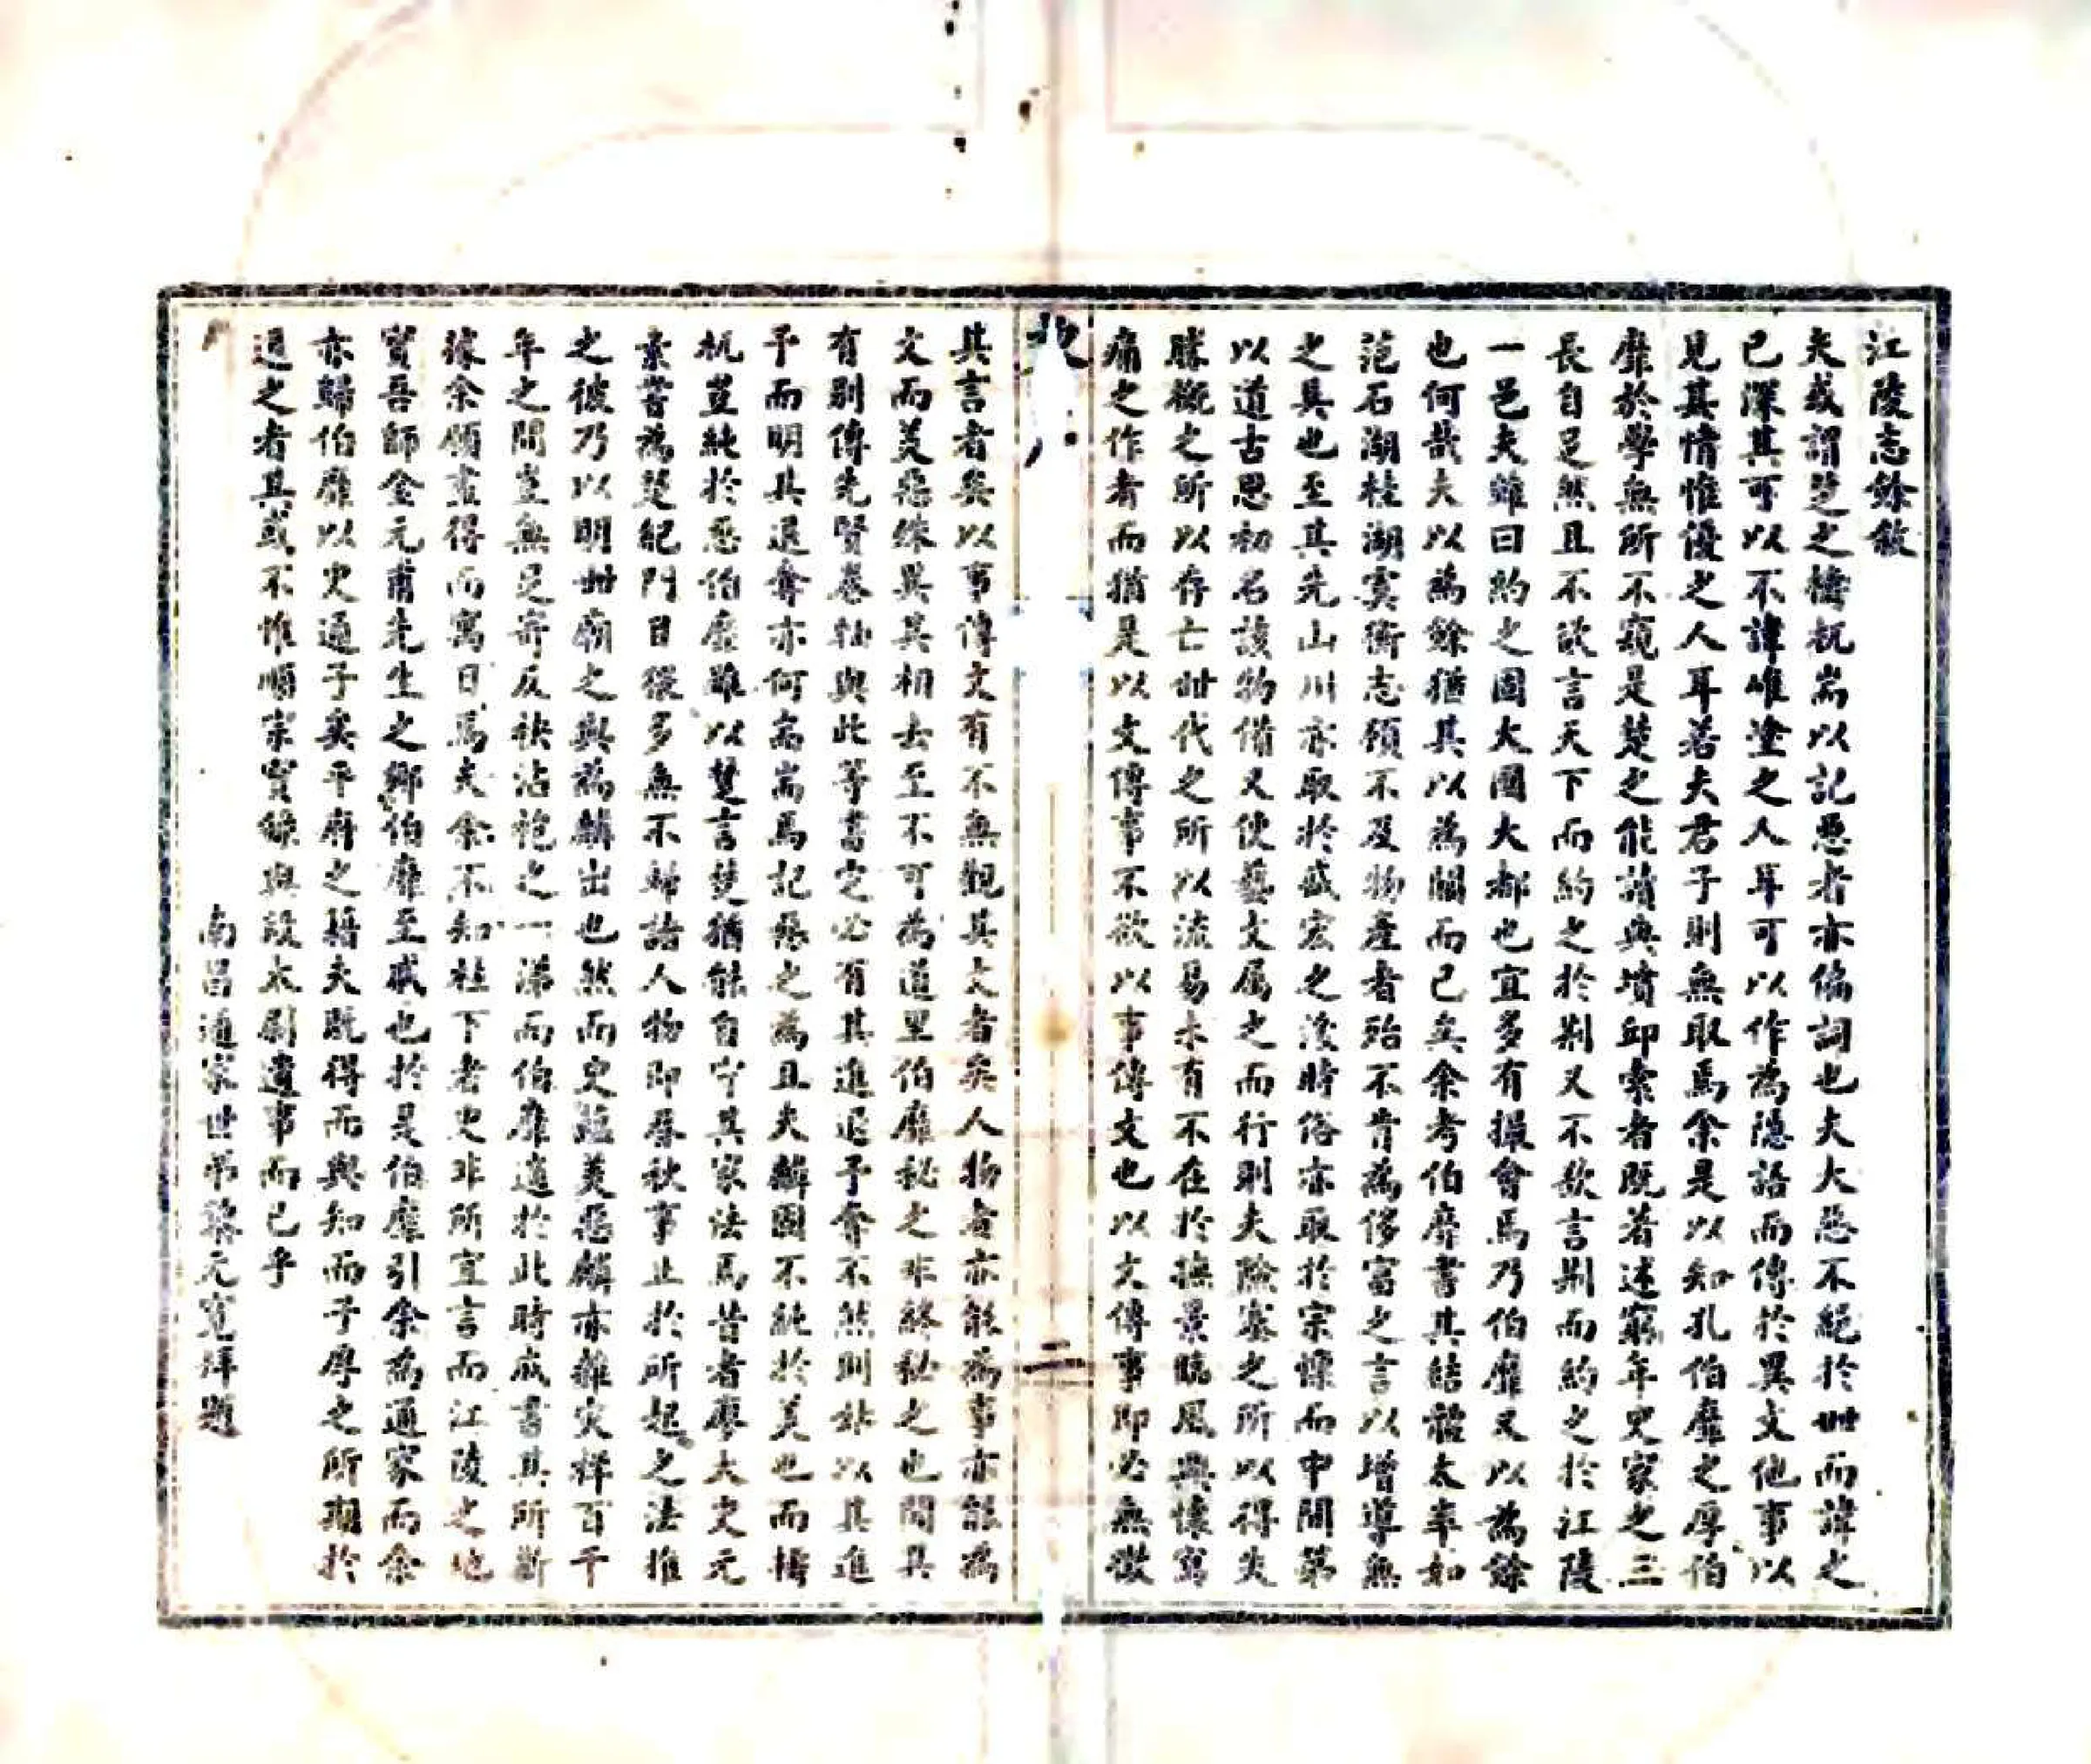 江陵志餘敘
夫或謂楚之檮杌耑以記惡者亦偏詞也夫大惡不絕於世而諱之
已深其可以不諱唯塗之人耳可以作為隱語而傳於異文他事以
見其情惟優之人耳若夫君子則無取焉余是以知孔伯靡之厚伯
靡於學無所不窺是楚之能讀典墳邱索者既著述窮年史家之三
長自足然且不欲言天下而約之於荆又不欲言荆而約之於江陵
一邑夫雖曰約之固大國大都也宜多有攟會焉乃伯靡又以為餘
也何哉夫以為餘猶其以為關而已矣余考伯靡書其結體太率如
范石湖桂湖虞衡志領不及物產者殆不肯為侈富之言以增導無
之具也至其先山川亦取於盛宏之後時俗亦取於宗懍而中間第
以道古思初名該物備又使藝文屬之而行則夫險塞之所以得失
勝概之所以存亡世代之所以流易未有不在於撫景臨風興懷寫
痛之作者而猶是以文傳事不欲以事傳文也以文傳事即必無徵
二
其言者矣以事傳文有不無觀其文者矣人物者亦能為事亦能為
文而美惡殊異其相去至不可為道里伯靡秘之非終秘之也間具
有別傳先賢卷軸與此等書定必有其進退予奪不然則非以其進
予而明其退奪亦何耑耑焉記惡之為且夫麟固不純於美也而檮
杌豈純於惡伯靡雖以楚言楚猶能自守其家法焉昔者廖大史元
素嘗為楚紀門目猥多無不歸諸人物即春秋事止於所起之法推
之彼乃以明世廟之興為麟出也然而史筵美惡麟亦雜灾祥百千
年之間豈無足寄反袂沾袍之一涕而伯靡適於此時成書其所斷
緣余願盡得而寓目焉夫余不知柱下者史非所宜言而江陵之地
實吾師金元甫先生之鄉伯靡至戚也於是伯靡引余為通家而余
亦歸伯靡以史通子矣平府之籍夫既得而與知而子厚之所期於
退之者其或不惟順宗實錄與段太尉遺事而已乎
南昌通家世弟黎元寬拜題